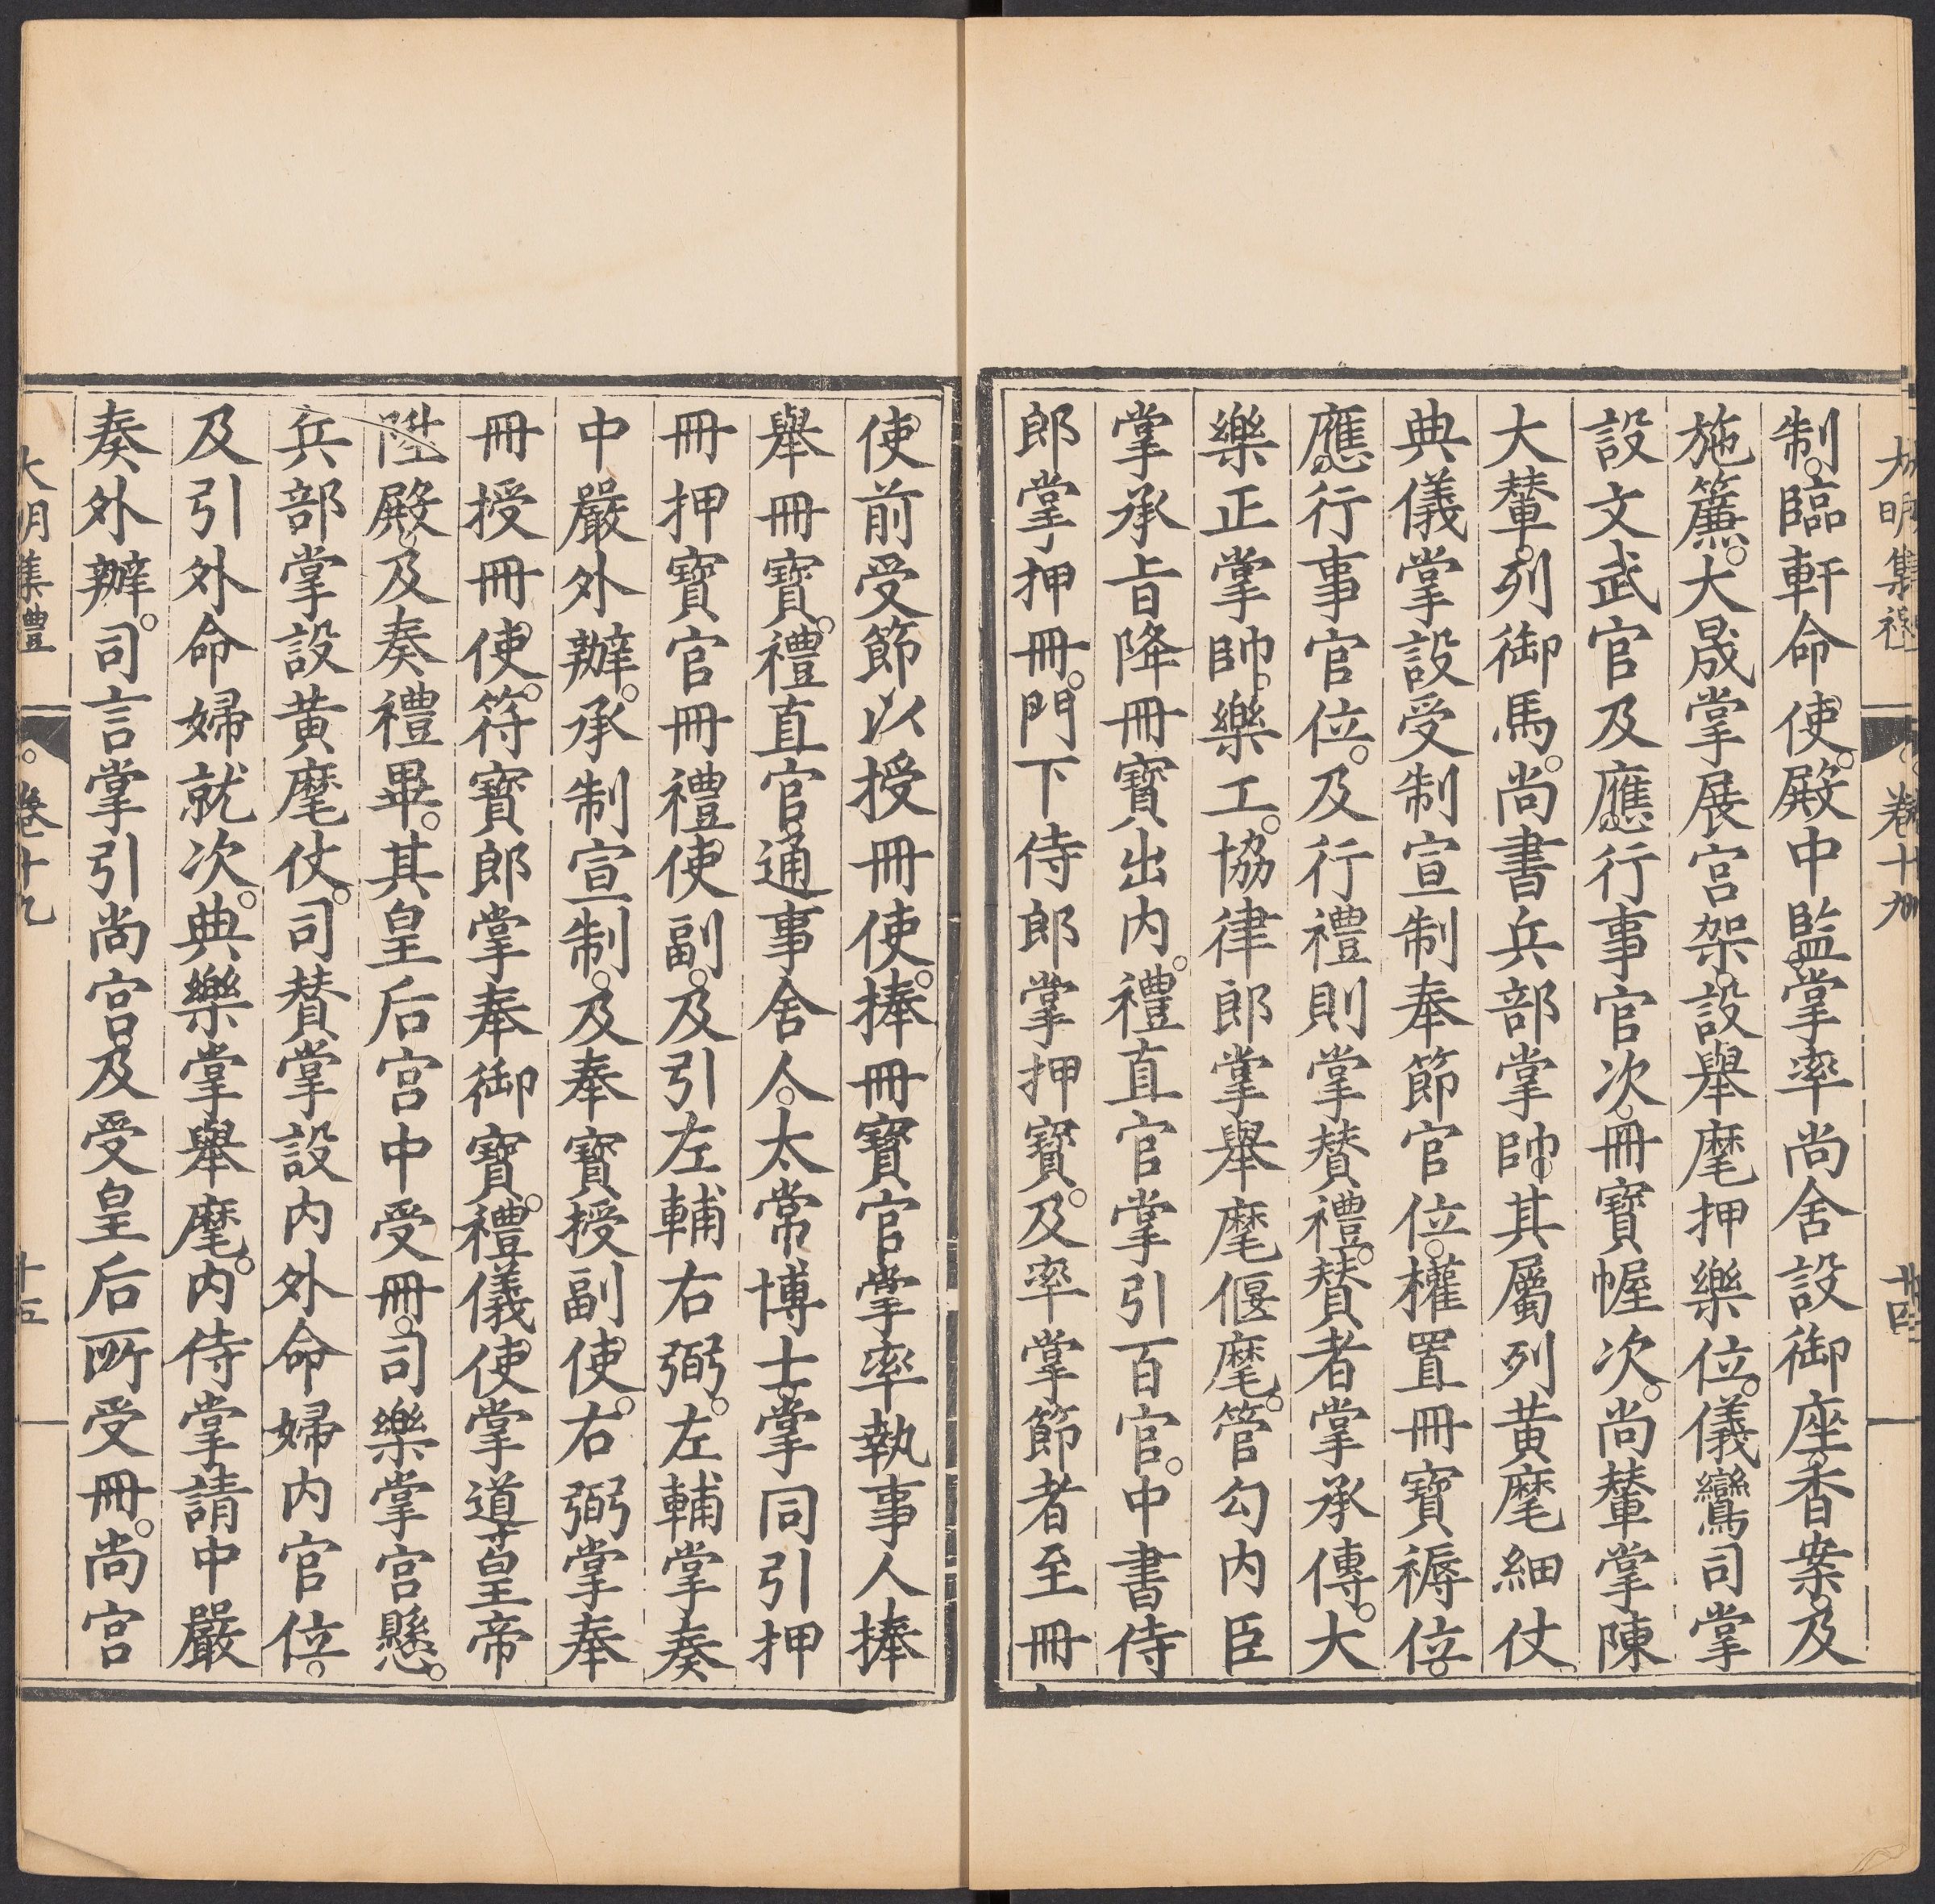 大明集禮 卷十九 十四
制臨軒命使。殿中監掌率尚舍設御座香案。及
施簾。大晟掌展宮架。設舉麾押樂位。儀鸞司掌
設文武官及應行事官次。冊寶幄次。尚輦掌陳
大輦。列御馬。尚書兵部掌帥其屬列黃麾細仗
典儀掌設受制宣制奉節官位。權置冊寶褥位。
應行事官位。及行禮則掌贊禮。贊者掌承傳。大
樂正掌帥樂工。協律郎掌舉麾偃麾。管勾內臣
掌承旨降冊寶出內。禮直官掌引百官。中書侍
郎掌押冊。門下侍郎掌押寶。及率掌節者至冊
使前受節以授冊使。捧冊寶官掌率執事人捧
舉冊寶。禮直官。通事舍人。太常博士掌同引押
冊押寶官冊禮使副。及引左輔右弼。左輔掌奏
中嚴外辦。承制宣制。及奉寶授副使。右弼掌奉
冊授冊使。符寶郎掌奉御寶。禮儀使掌導皇帝
陞殿。及奏禮畢。其皇后宮中受冊。司樂掌宮懸。
兵部掌設黃麾仗。司贊掌設內外命婦內官位。
及引外命婦就次。典樂掌舉麾。內侍掌請中嚴
奏外辦。司言掌引尚宮。及受皇后所受冊。尚宮
大明集禮 卷十九 十五